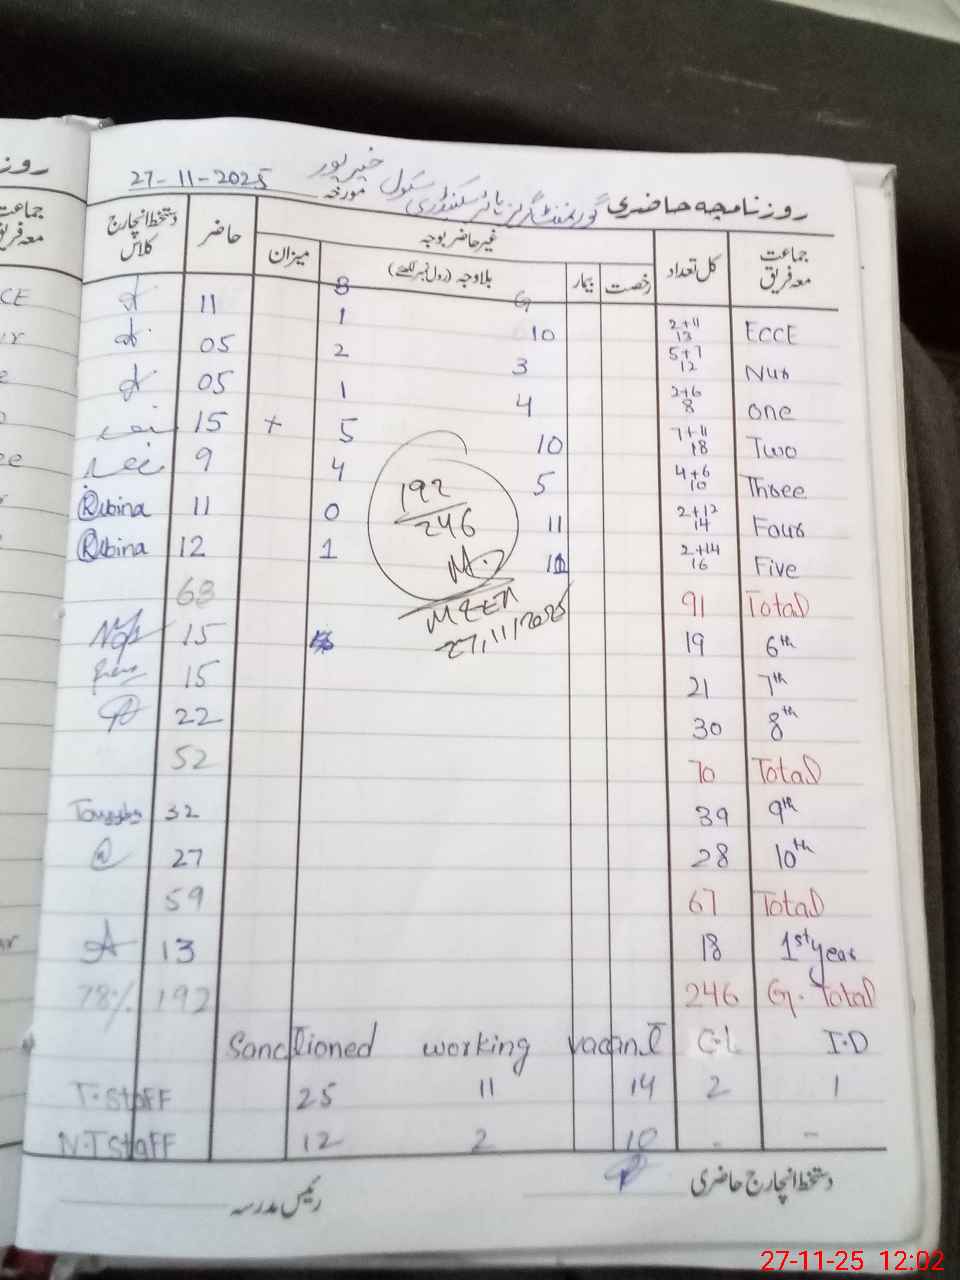 روزنامچہ حاضری گورنمنٹ گرلز ہائر سکنڈری سکول خیرپور مورخہ 27-11-2025
جماعت معہ فریق کل تعداد غیر حاضر بوجہ حاضر دستخط انچارج کلاس
رخصت بیمار بلاوجہ (رول نمبر لکھئے) میزان
B G
ECCE 2+11 13 10 1 11
Nur 5+7 12 3 2 05
one 2+6 8 4 1 05
Two 7+11 18 10 5 + 15
Three 4+6 10 5 4 9
Four 2+12 14 11 0 11 Rubina
Five 2+14 16 11 1 12 Rubina
Total 91 68
192
246
27/11/2025
6th 19 15
7th 21 15
8th 30 22
Total 70 52
9th 39 32
10th 28 27
Total 67 59
1st year 18 13
G. Total 246 192 78%
Sanctioned working vacant C.L I.D
T.Staff 25 11 14 2 1
N.T Staff 12 2 10 - -
دستخط انچارج حاضری
رئیس مدرسہ
جماعت
معہ فریق
27-11-25 12:02